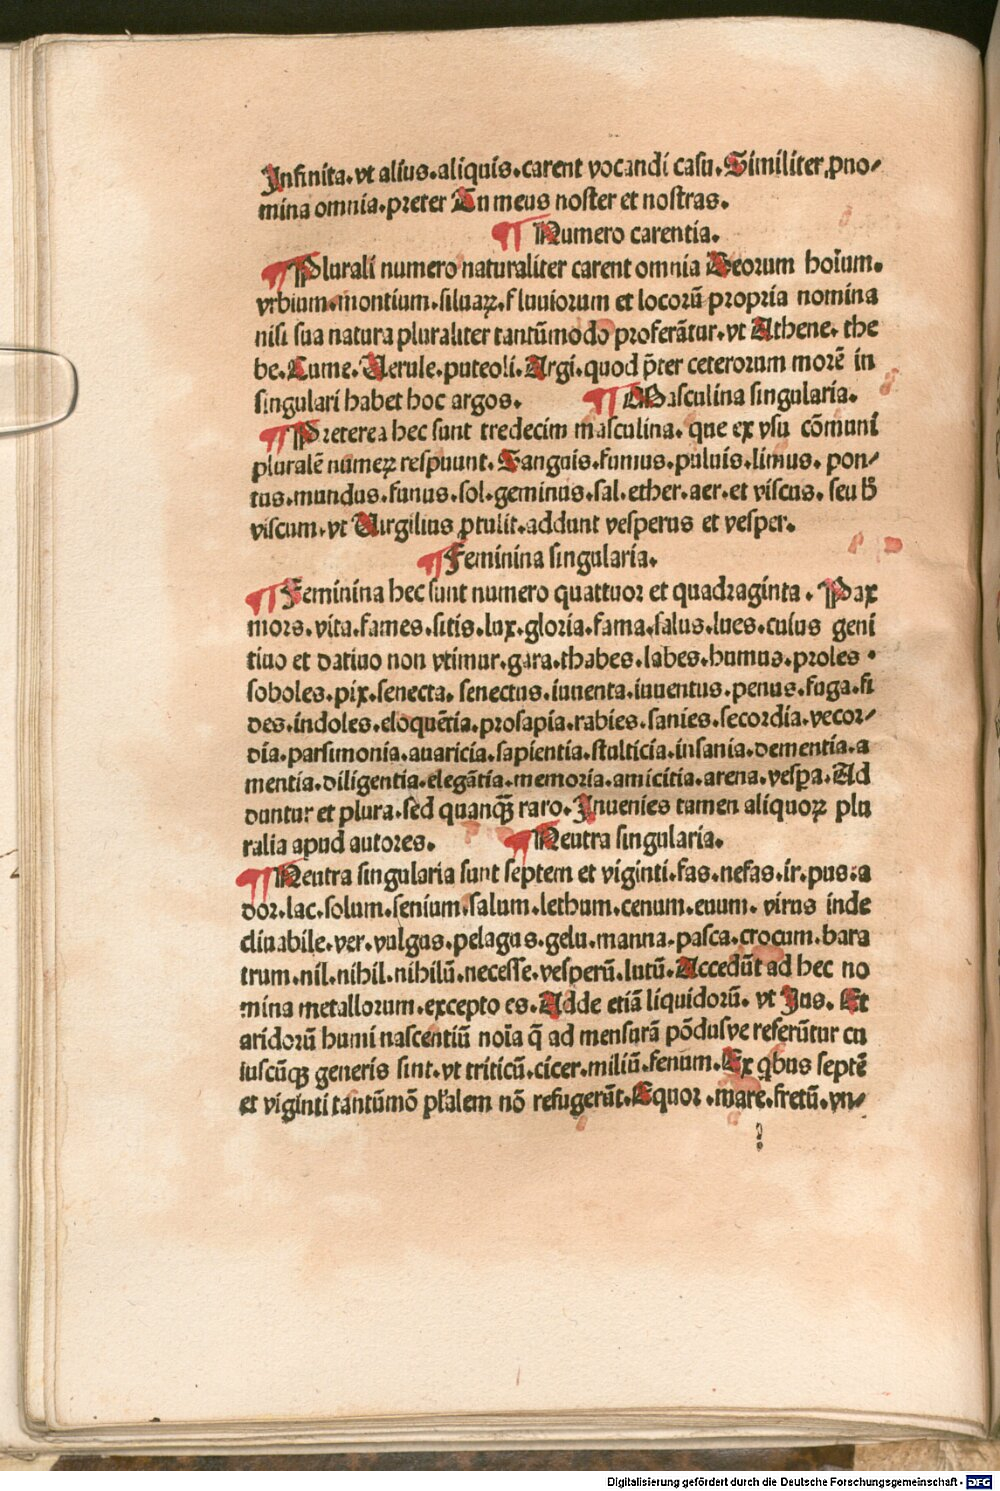 Infinita.vt alius.aliquis.carent vocandi casu.Similiter ꝓno⸗
mina omnia.preter Tu meus noster et nostras.
¶ Numero carentia.
¶ Plurali numero naturaliter carent omnia Deorum hoīum.
vrbium.montium.siluaꝝ.fluuiorum et locorū propria nomina
nisi sua natura pluraliter tantūmodo proferātur.vt Athene.the
be.Cume.Verule.puteoli.Argi.quod p̄ter ceterorum morē in
singulari habet hoc argos. ¶ Masculina singularia.
¶ Preterea hec sunt tredecim masculina. que ex vsu cōmuni
pluralē numeꝝ respuunt.Sanguis.fumus.puluis.limus.pon⸗
tus.mundus.funus.sol.geminus.sal.ether.aer.et viscus.seu h̄
viscum.vt Virgilius ꝓtulit.addunt vesperus et vesper.
¶ Feminina singularia.
¶ Feminina hec sunt numero quattuor et quadraginta. Pax
mors.vita.fames.sitis.lux.gloria.fama.salus.lues.cuius geni
tiuo et datiuo non vtimur.gara.thabes.labes.humus.proles.
soboles.pix.senecta. senectus.iuuenta.iuuentus.penus.fuga.fi
des.indoles.eloquētia.prosapia.rabies.sanies.secordia.vecor⸗
dia.parsimonia.auaricia.sapientia.stulticia.insania.dementia.a
mentia.diligentia.elegātia.memoria.amicitia.arena.vesꝑa.Ad
duntur et plura.sed quanqꝫ raro.Inuenies tamen aliquoꝝ plu
ralia apud autores. ¶ Neutra singularia.
¶ Neutra singularia sunt septem et viginti.fas.nefas.ir.pus.a
dor.lac.solum.senium.salum.lethum.cenum.euum. virus inde
cliuabile.ver.vulgus.pelagus.gelu.manna.pasca.crocum.bara
trum.nil.nihil.nihilū.necesse.vesperū.lutū.Accedūt ad hec no
mina metallorum.excepto es.Adde etiā liquidorū. vt Jus. Et
aridorū humi nascentiū noīa q̄ ad mensurā pōdusve referūtur cu
iuscūqꝫ generis sint.vt triticū.cicer.miliū.fenum.Ex qbus septē
et viginti tantūmō pl'alem nō refugerūt.Equor.mare.fretū.vn⸗
Digitalisierung gefördert durch die Deutsche Forschungsgemeinschaft - DFG